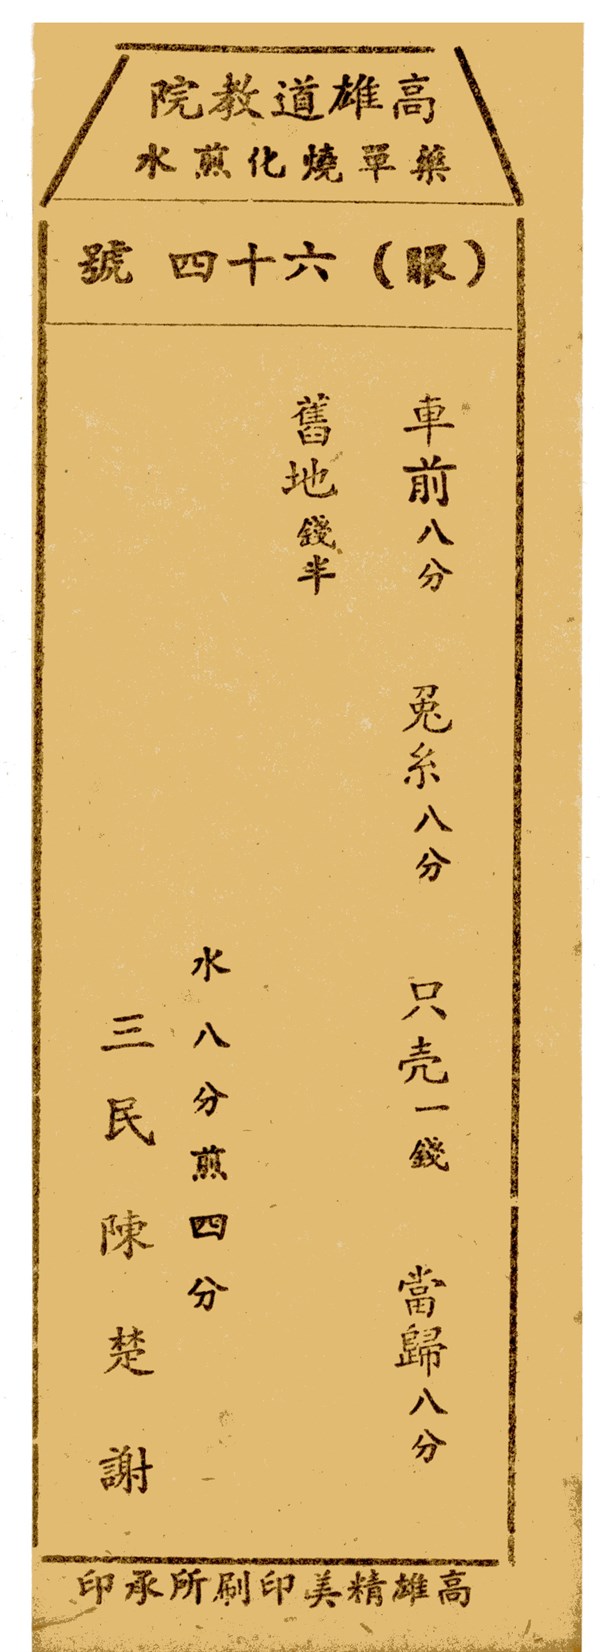 高雄道教院
藥單燒化煎水
（眼）六十四 號
車前八分 兎糸八分 只壳一錢 當歸八分
舊地錢半
水八分煎四分
三民陳楚謝
高雄精美印刷所承印